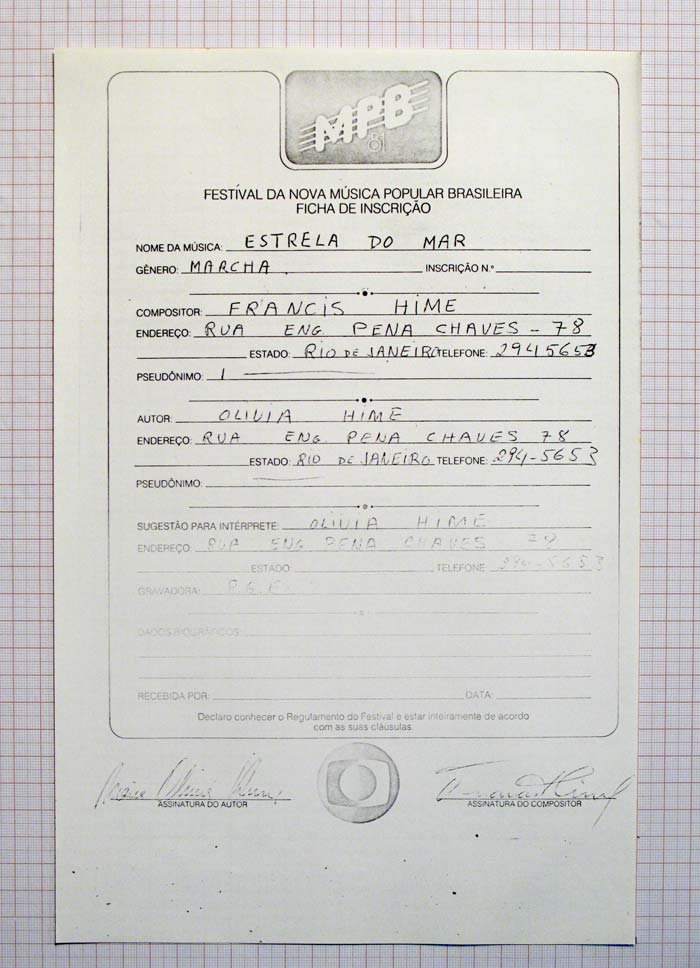 MPB
81
FESTIVAL DA NOVA MÚSICA POPULAR BRASILEIRA
FICHA DE INSCRIÇÃO
NOME DA MÚSICA: ESTRELA DO MAR
GÊNERO: MARCHA INSCRIÇÃO N.º
COMPOSITOR: FRANCIS HIME
ENDEREÇO: RUA ENG. PENA CHAVES - 78
ESTADO: RIO DE JANEIRO TELEFONE: 2945653
PSEUDÔNIMO:
AUTOR: OLIVIA HIME
ENDEREÇO: RUA ENG. PENA CHAVES 78
ESTADO: RIO DE JANEIRO TELEFONE: 294-5653
PSEUDÔNIMO:
SUGESTÃO PARA INTÉRPRETE: OLIVIA HIME
ENDEREÇO: RUA ENG PENA CHAVES 78
ESTADO: TELEFONE: 294-5653
GRAVADORA:
DADOS BIOGRÁFICOS:
RECEBIDA POR: DATA:
Declaro conhecer o Regulamento do Festival e estar inteiramente de acordo
com as suas cláusulas.
ASSINATURA DO AUTOR ASSINATURA DO COMPOSITOR